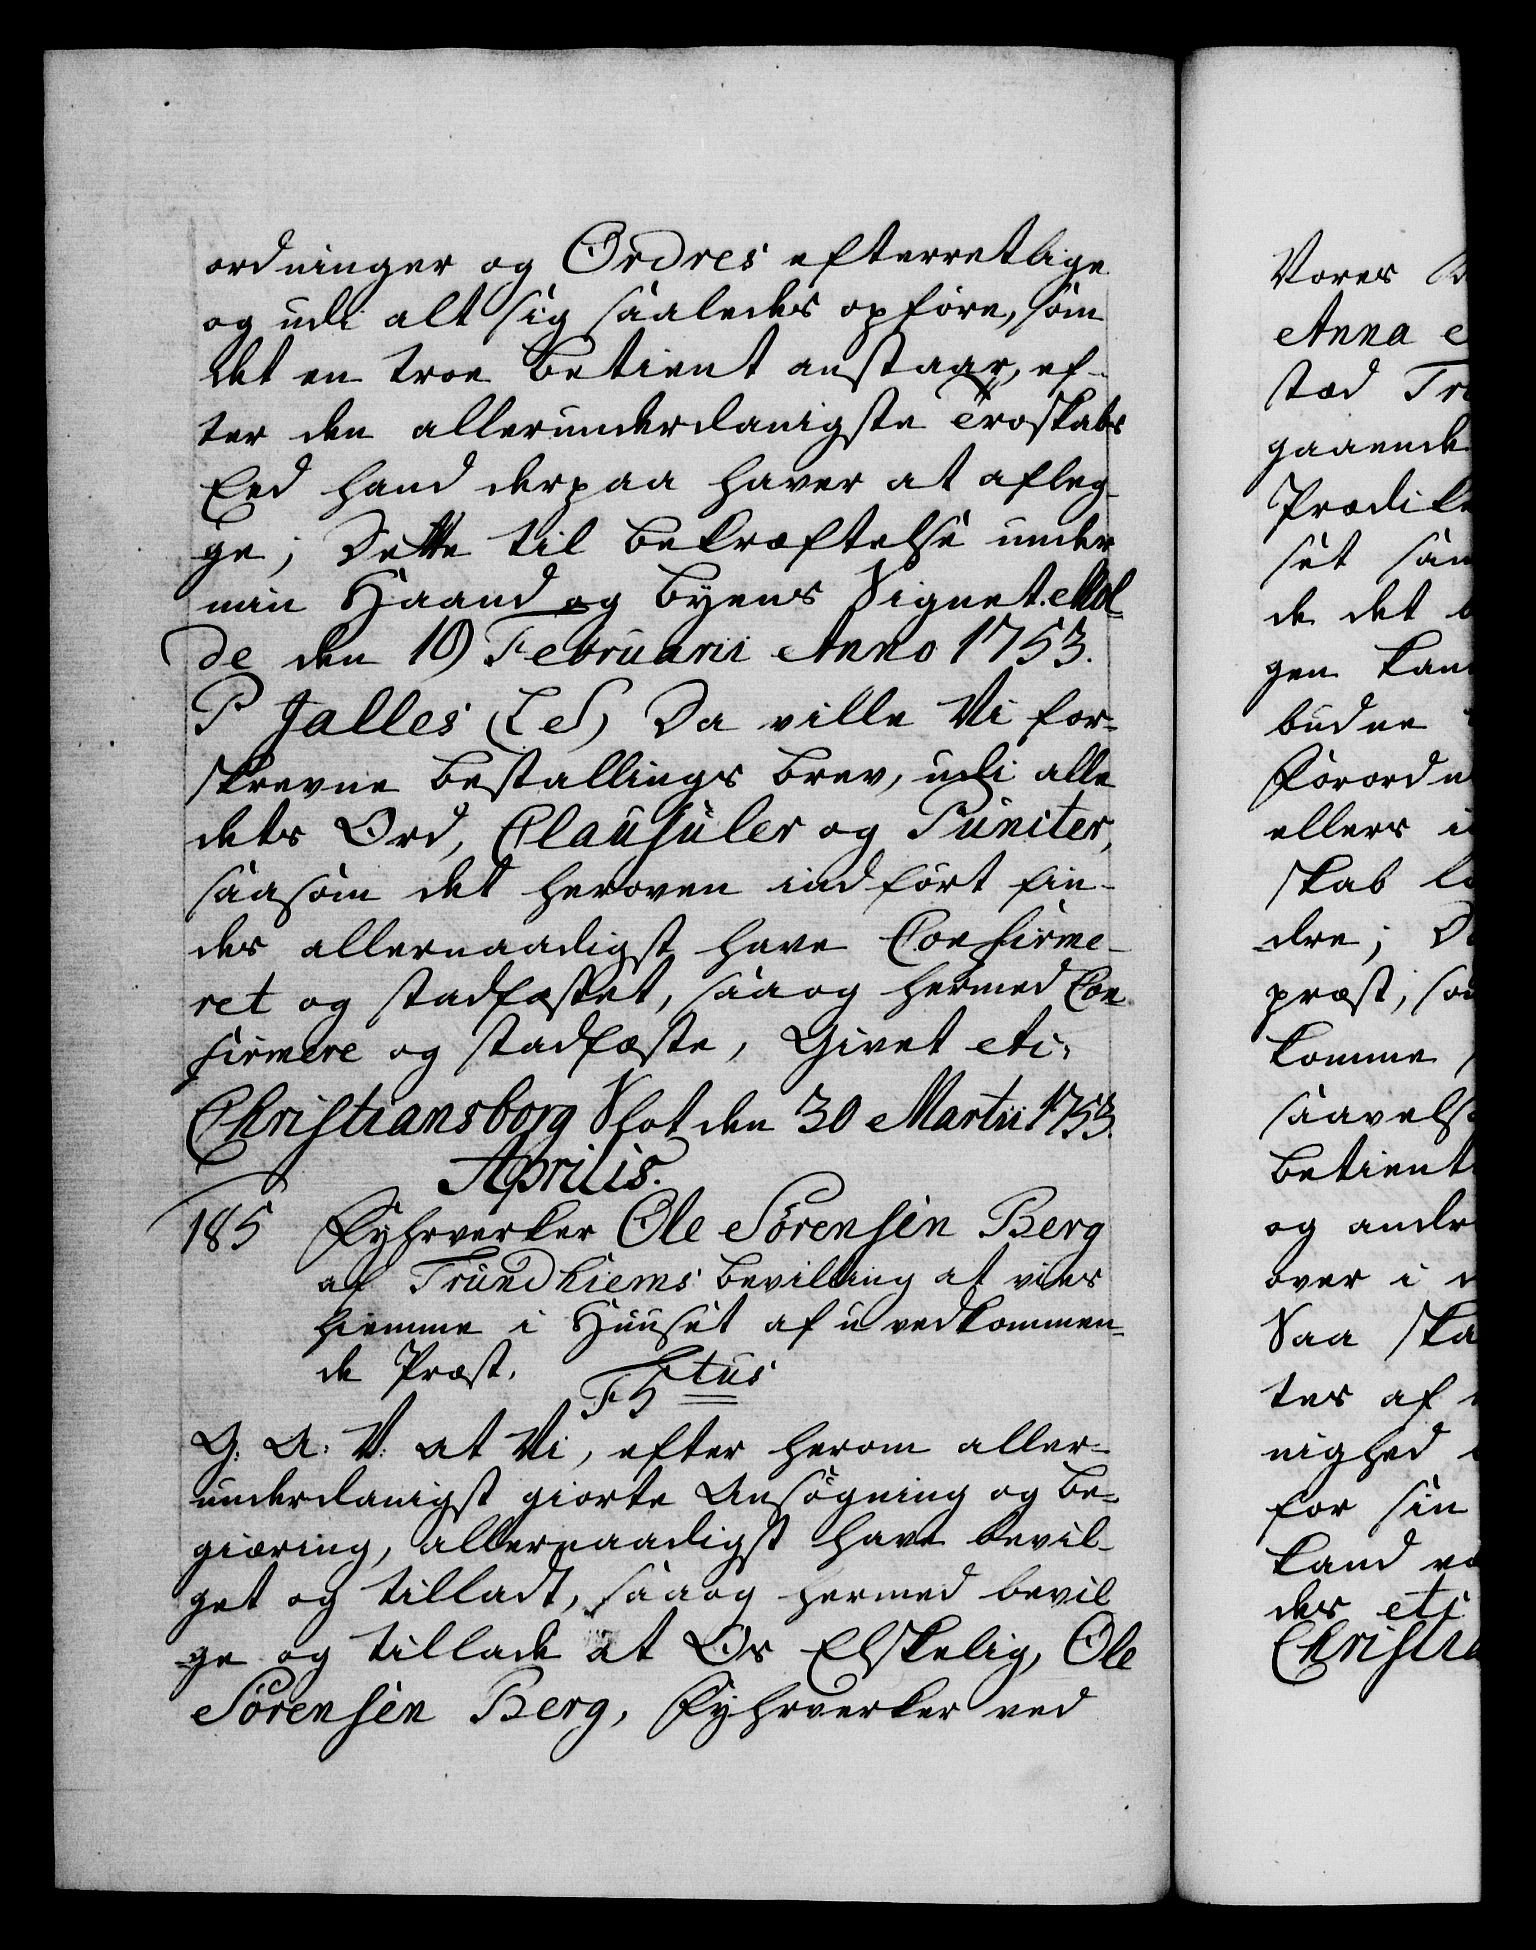 ordninger og Ordres efterretlige
og udi alt sig saaledes opføre, som
det en troe Betient anstaar, ef-
ter den allerunderdanigste Troskabs
Eed hand derpaa haver at afleg-
ge; Dette til Bekræftelse under
min Haand og Byens Signet. Mol-
de den 19 Februarii Anno 1753.
P Jalles (LS) Da ville Vi for-
skrevne Bestallings Brev, udi alle
dets Ord, Clausuler og Puncter,
saasom det heroven indført fin-
des allernaadigst have Confirme-
ret og stadfæstet, saa og hermed Con
firmere og stadfæste, Givet etc:
Christiansborg Slot den 30 Martii 1753.
Aprilis.
185 Fyhrverker Ole Sørensen Berg
af Trundhiems Bevilling at vies
hiemme i Huuset af uvedkommen-
de Præst.
F 5 tus
G: A: V: at Vi, efter herom aller-
underdanigst giorte Ansøgning og Be-
giæring, allernaadigst have bevil-
get og tilladt, saa og hermed bevil
ge og tillade at Os Elskelig, Ole
Sørensen Berg, Fyhrverker ved
Vores
Anna
stad
gaaende
de det
gen
budne
ellers
skab
-dre;
præst,
komme
Betient
og andr
over i
Saa ska
tes af
nighed
for sin
kand
des etc
Christia